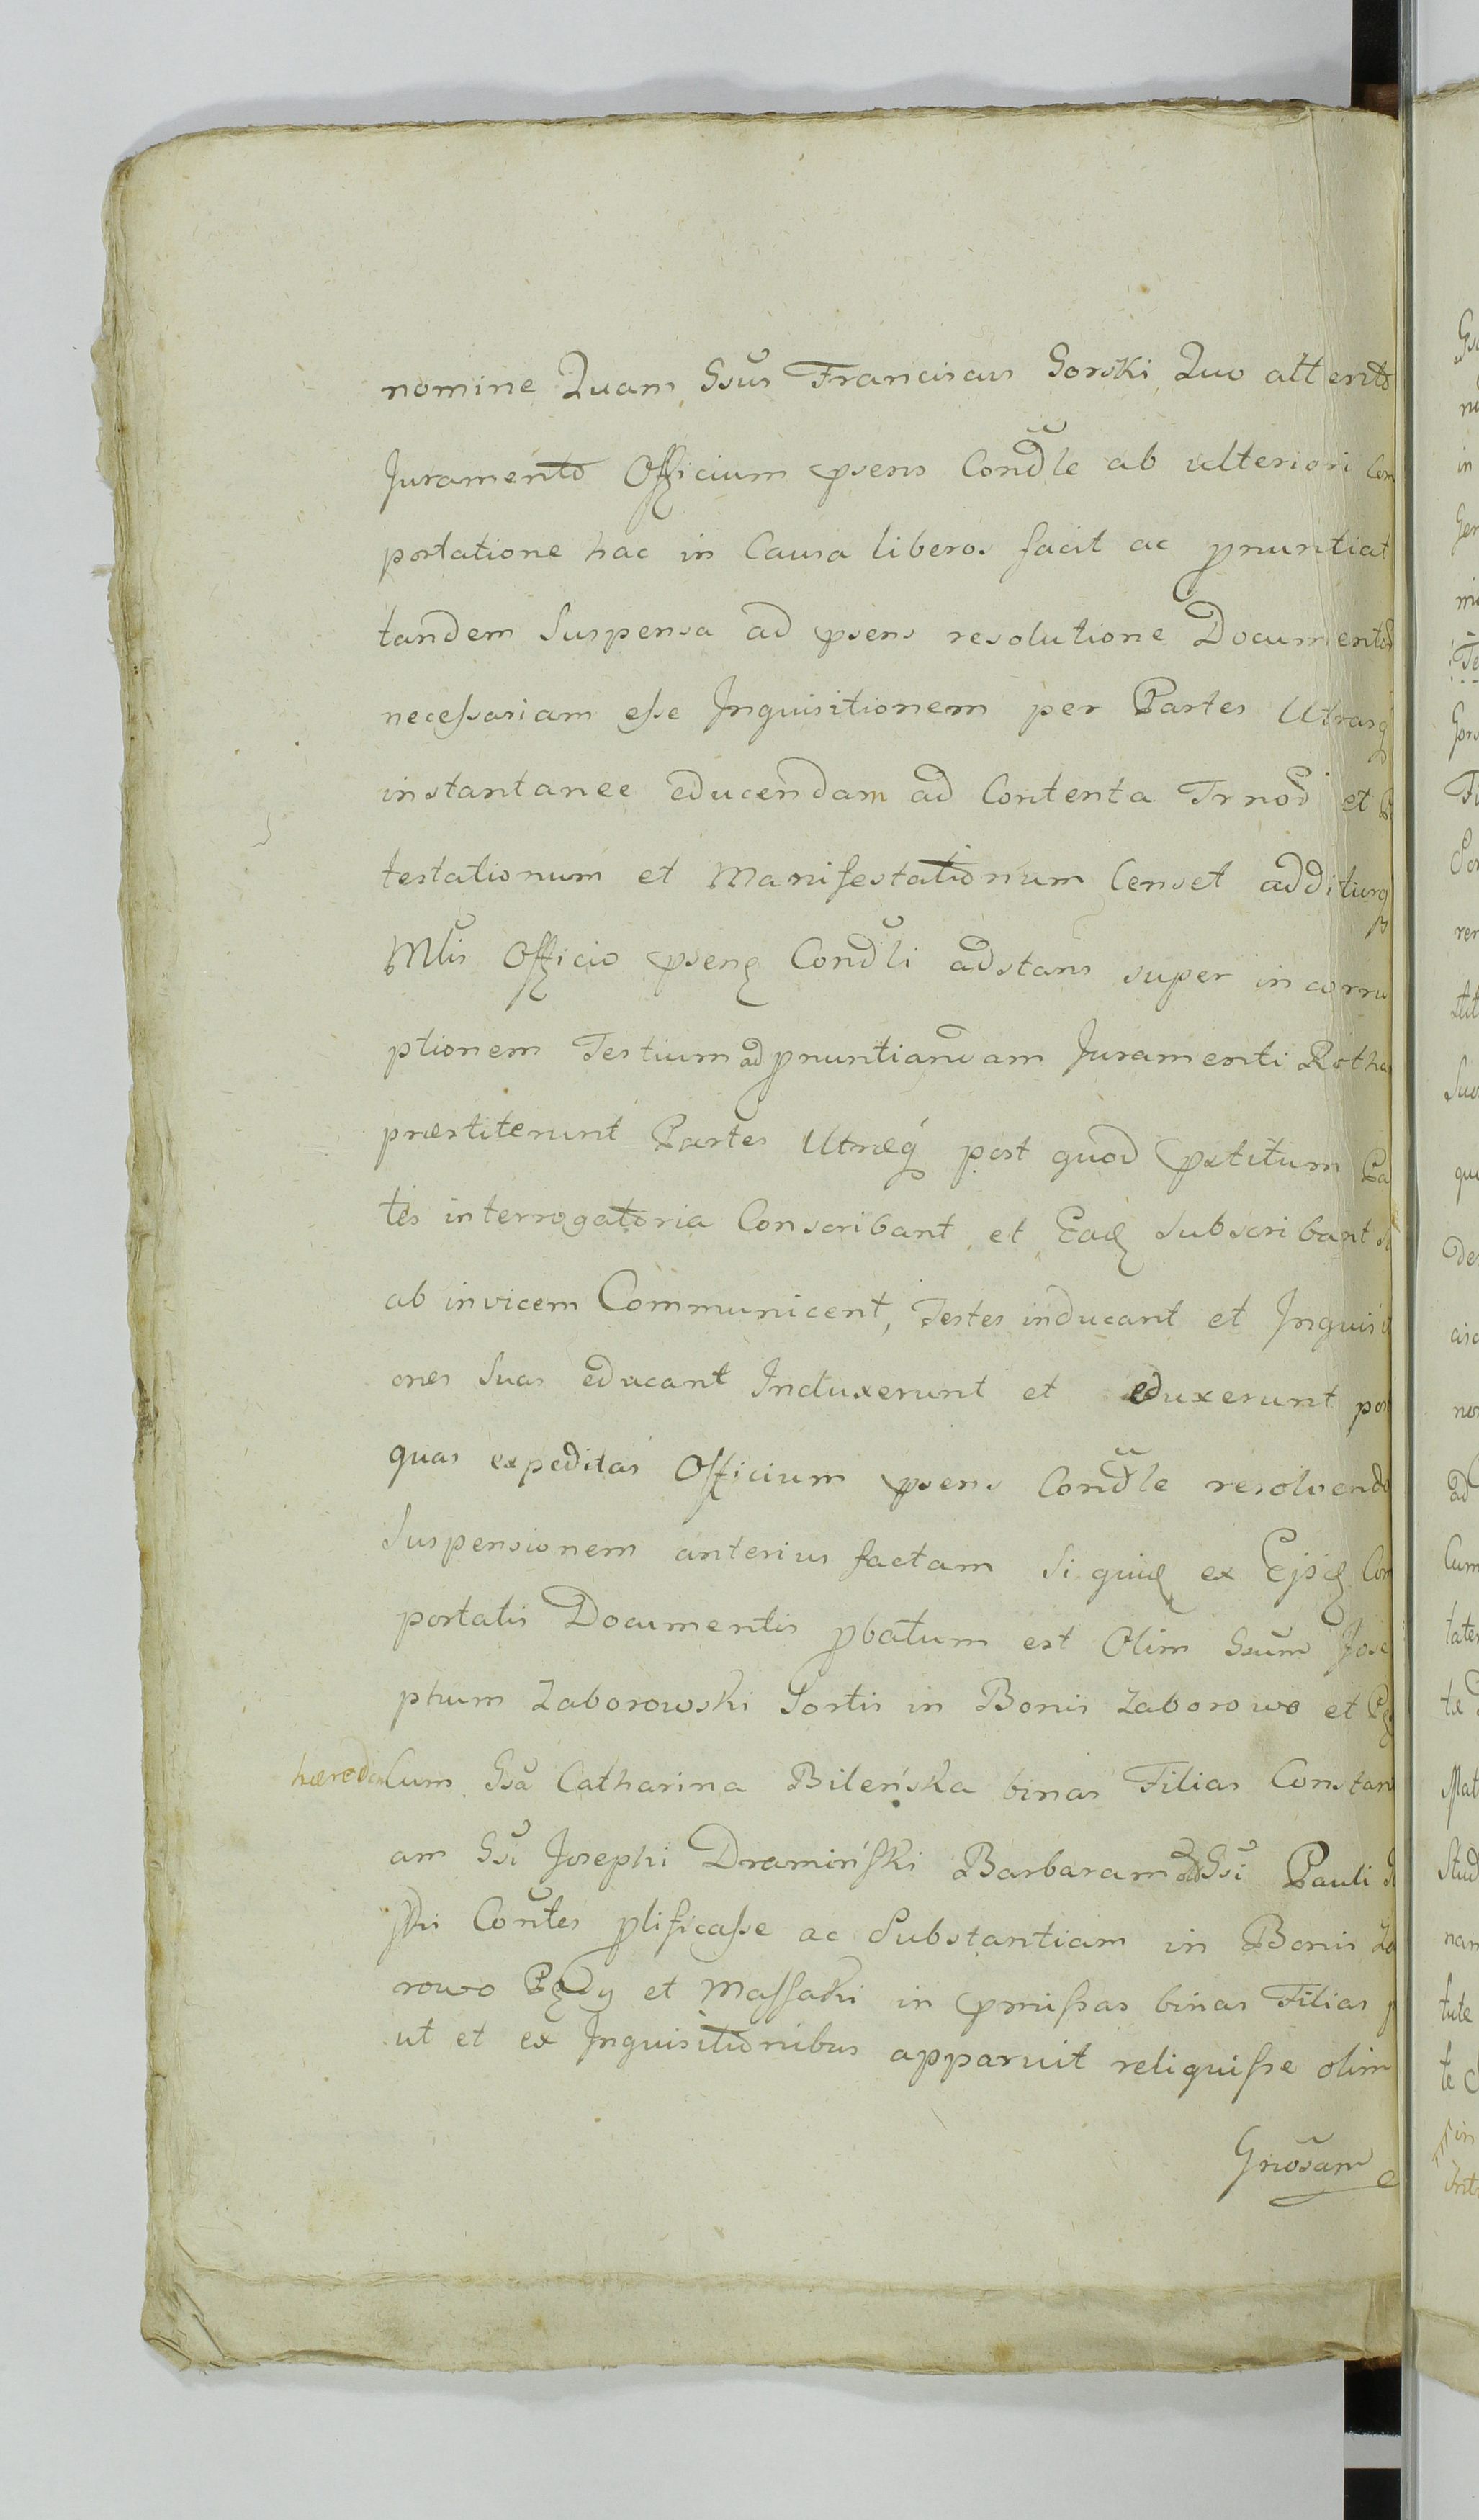 nomine Quam Gsus Franciscus Gorski Quo attento
Juramento Officium psens Condle ab ulteriori Com
portatione hac in Causa liberos facit ac pnuntiat
tandem Suspensa ad psens resolutione Documentor
necessariam esse Inquisitionem per Partes Utrasq
instantanee educendam ad Contenta Trnod et
testationum et Manifestationum Censet additurq
Mlis Officio psenq Condli adstans super incorru
ptionem Testium ad pnuntiandam Juramenti Rotha
præstiterunt Partes Utræq post quod pstitum Pa
tes interrogatoria Conscribant et Eaq subscribant
ab invicem Communicent, Testes inducant et Inquisi
ones Suas educant Induxerunt et eduxerunt post
quas expeditas Officium psens Condle resolvendo
Suspensionem anterius factam Si quiq ex Ejsq Com
portatis Documentis pbatum est Olim Gsum Jose
phum Zaborowski Sortis in Bonis Zaborowo et
hæredem Cum Gsa Catharina Bileńska binas Filias Constan
am Gsi Josephi Dramiński Barbaram Gsi Pauli
ski Contes plificasse ac Substantiam in Bonis Za
rowo et Massaki in pmissas binas Filias
ut et ex Inquisitionibus apparuit reliquisse olim
Gnosam